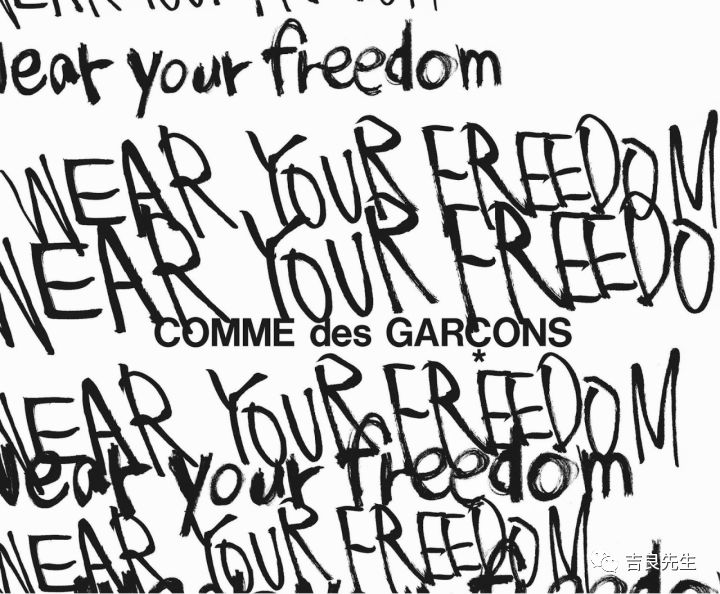 WEAR YOUR FREEDOM
Wear your freedom
WEAR YOUR FREEDOM
WEAR YOUR FREEDO
COMME des GARÇONS
*
WEAR YOUR FREEDOM
wear your freedom
WEAR YOUR FREEDOM
your freedo
吉良先生